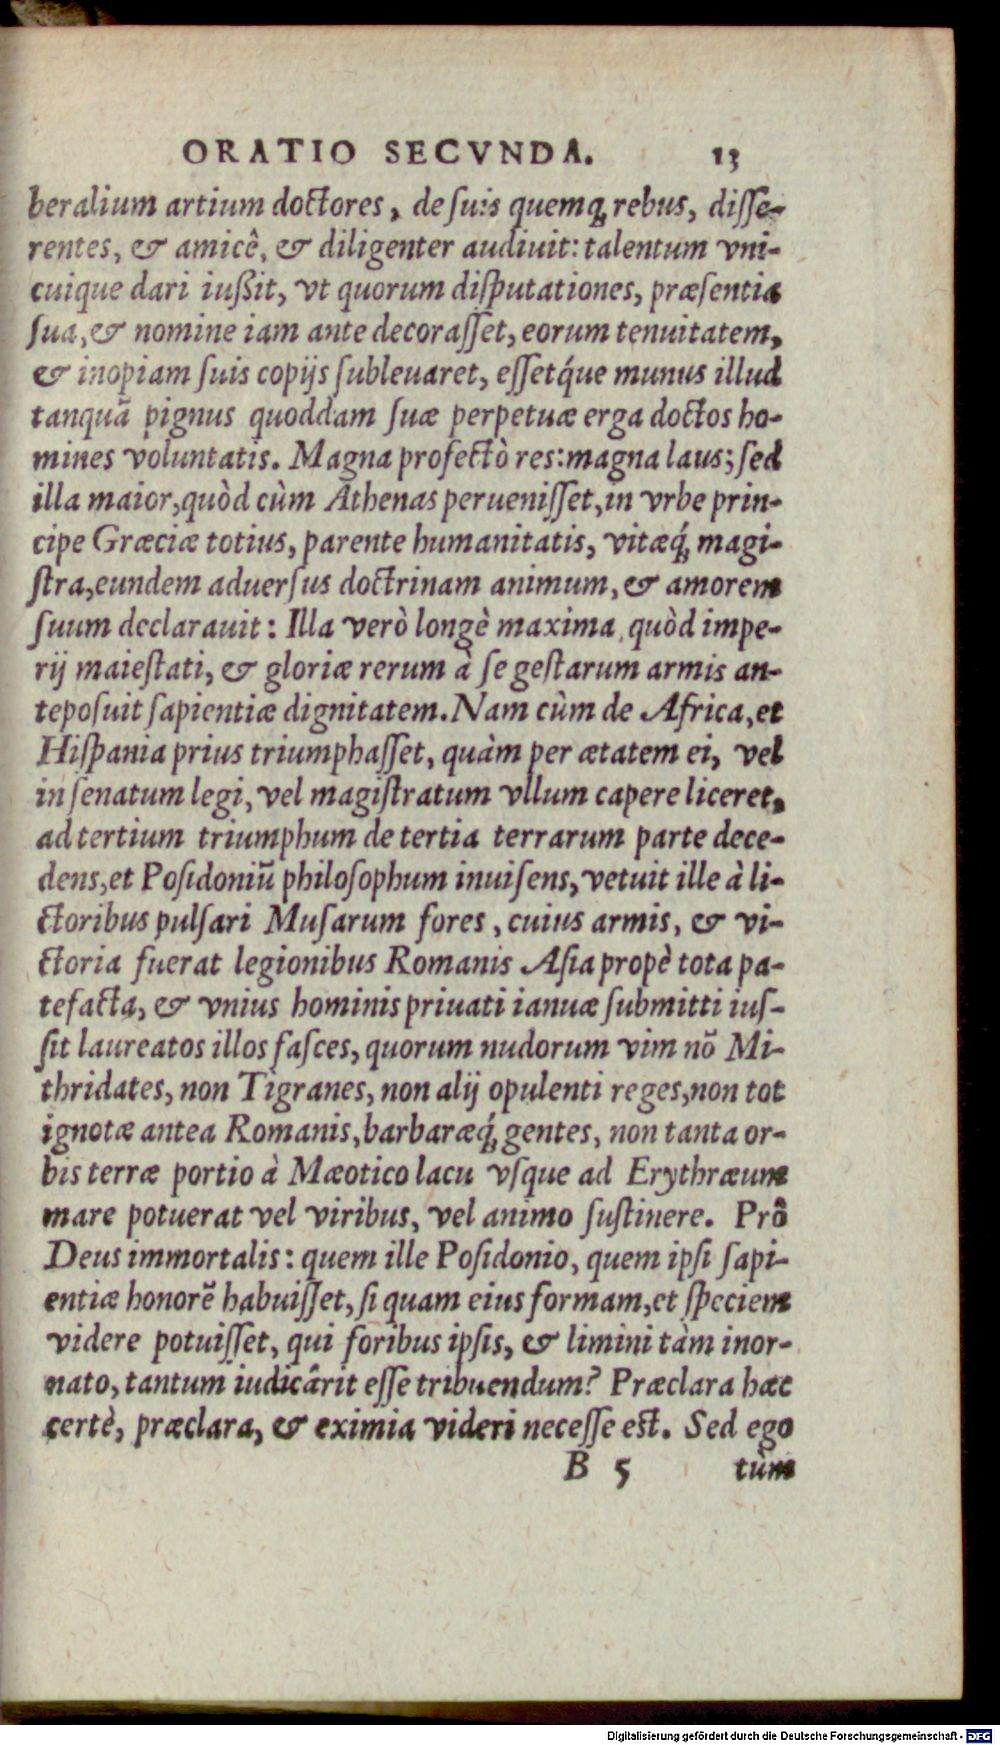 ORATIO SECVNDA. 13
beralium artium doctores, de suis quemq; rebus, disse-
rentes, & amicê, & diligenter audiuit: talentum vni-
cuique dari iußit, vt quorum disputationes, præsentia
sua, & nomine iam ante decorasset, eorum tenuitatem,
& inopiam suis copijs subleuaret, essetq́ue munus illud
tanquã pignus quoddam suæ perpetuæ erga doctos ho-
mines voluntatis. Magna profectò res: magna laus; sed
illa maior, quòd cùm Athenas peruenisset, in vrbe prin-
cipe Græciæ totius, parente humanitatis, vitæq́; magi-
stra, eundem aduersus doctrinam animum, & amorem
suum declarauit: Illa verò longè maxima, quòd impe-
rij maiestati, & gloriæ rerum à se gestarum armis an-
teposuit sapientiæ dignitatem. Nam cùm de Africa, et
Hispania prius triumphasset, quàm per ætatem ei, vel
in senatum legi, vel magistratum vllum capere liceret,
ad tertium triumphum de tertia terrarum parte dece-
dens, et Posidoniũ philosophum inuisens, vetuit ille à li-
ctoribus pulsari Musarum fores, cuius armis, & vi-
ctoria fuerat legionibus Romanis Asia propè tota pa-
tefacta, & vnius hominis priuati ianuæ submitti ius-
sit laureatos illos fasces, quorum nudorum vim nõ Mi-
thridates, non Tigranes, non alij opulenti reges, non tot
ignotæ antea Romanis, barbaræq́; gentes, non tanta or-
bis terræ portio à Mæotico lacu vsque ad Erythræum
mare potuerat vel viribus, vel animo sustinere. Prô
Deus immortalis: quem ille Posidonio, quem ipsi sapi-
entiæ honorẽ habuisset, si quam eius formam, et speciem
videre potuisset, qui foribus ipsis, & limini tàm inor-
nato, tantum iudicârit esse tribuendum? Præclara hæc
certè, præclara, & eximia videri necesse est. Sed ego
B 5 tùm
Digitalisierung gefördert durch die Deutsche Forschungsgemeinschaft - DFG